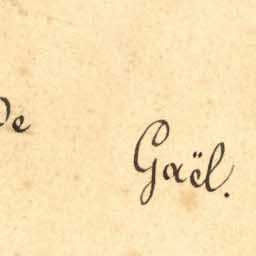 De
Gaël.